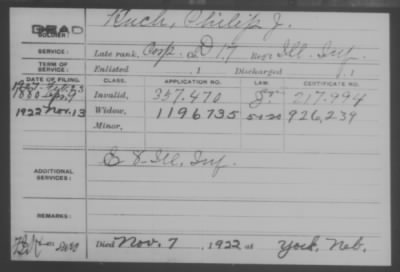 DEAD
SOLDIER: Kuch, Philip J.
SERVICE: Late rank, Corp. Co. D 17 Reg't Ill. Inf.
TERM OF SERVICE: Enlisted 1 Discharged 1
DATE OF FILING. CLASS. APPLICATION NO. LAW. CERTIFICATE NO.
1880 Invalid, 357.470 217.994
1922 Nov. 13 Widow, 1196735 5-1-20 926,239
Minor,
ADDITIONAL SERVICES: E 8. Ill. Inf.
REMARKS:
Died Nov. 7, 1922 at York, Neb.